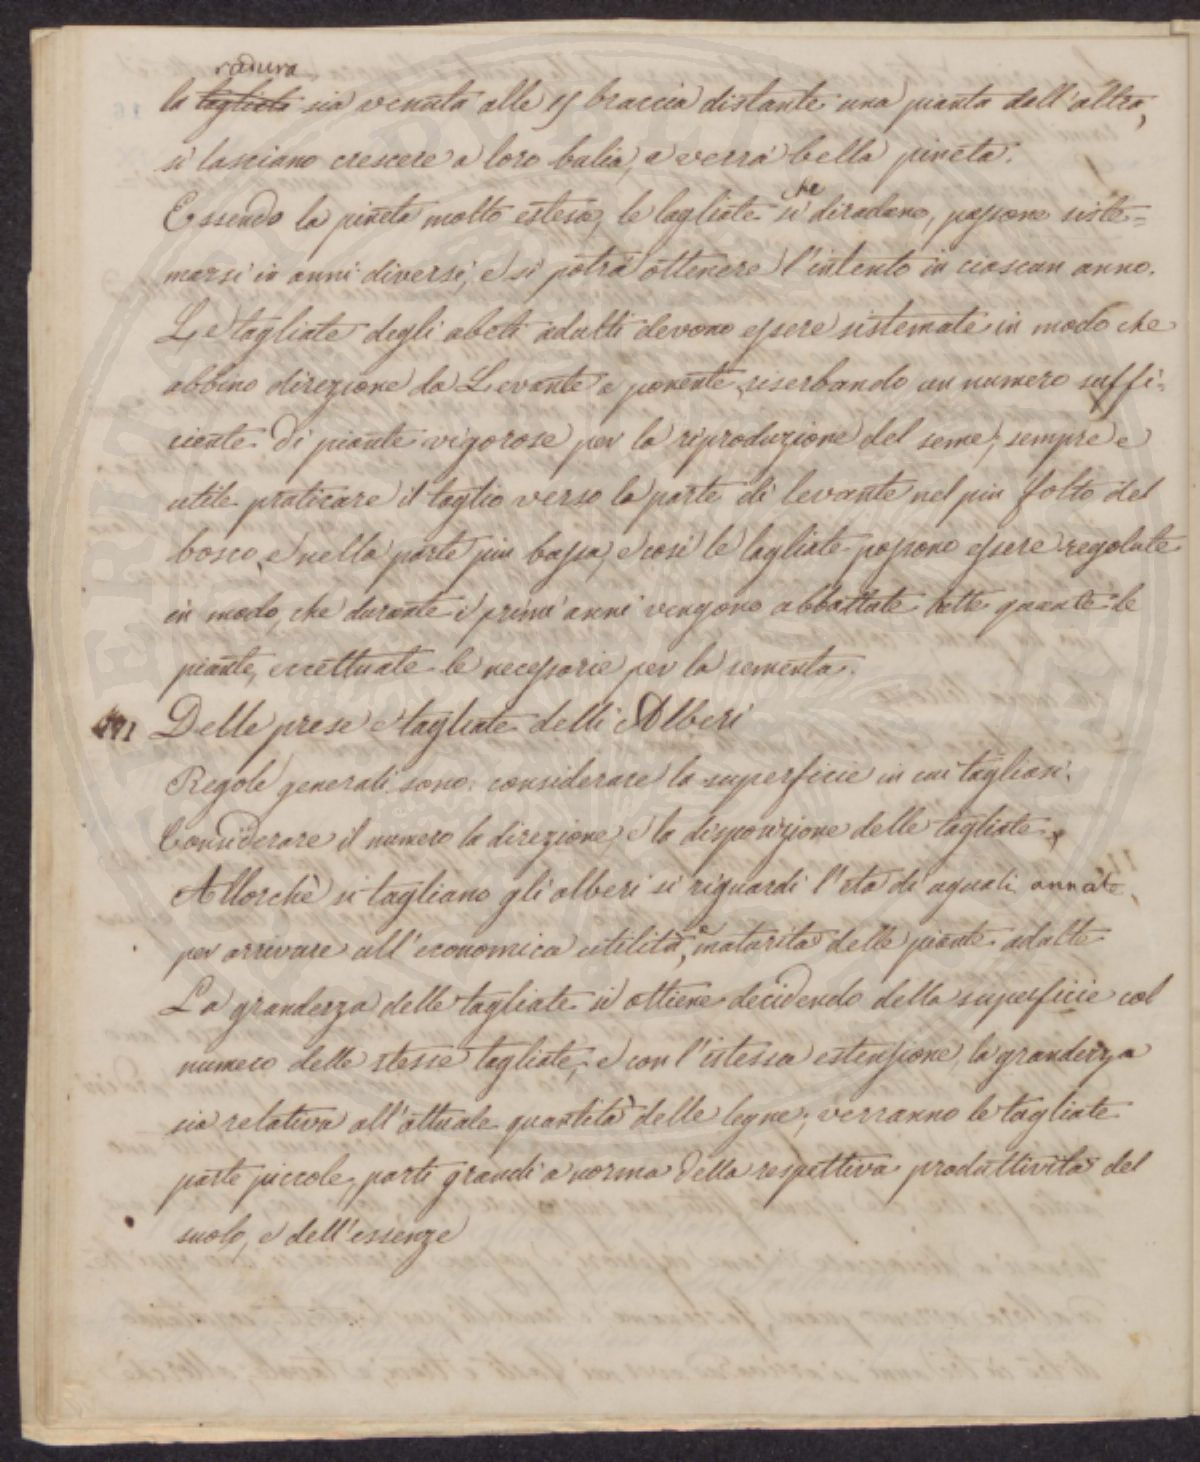 radura
la tagliata sia venuta alle 15 braccia distante una pianta dall'altra,
si lasciano crescere a loro balia, e verrà bella pineta.
Essendo la pineta molto estesa, le tagliate che si diradano, possono siste=
marsi in anni diversi, e si potrà ottenere l'intento in ciascun anno.
Le tagliate degli abeti adulti devono essere sistemate in modo che
abbino direzione da Levante a ponente, riserbando un numero suffi=
ciente di piante vigorose per la riproduzione del seme, sempre e
utile praticare il taglio verso la parte di levante nel piu folto del
bosco, e nella parte piu bassa, e così le tagliate possono essere regolate
in modo, che durante i primi anni vengono abbattute tutte quante le
piante, eccettuate le necessarie per la sementa.
Delle prese e tagliate delli Alberi
Regole generali sono: considerare la superficie in cui tagliasi.
Considerare il numero la direzione, e la disposizione delle tagliate
Allorchè si tagliano gli alberi si riguardi l'età di uguali annate
per arrivare all'economica utilità, e maturità delle piante adulte
La grandezza delle tagliate si ottiene decidendo della superficie col
numero delle stesse tagliate, e con l'istessa estensione, la grandezza
sia relativa all'attuale quantità delle legne; verranno le tagliate
parte piccole, parti grandi a norma della respettiva produttività del
suolo, e dell'essenze